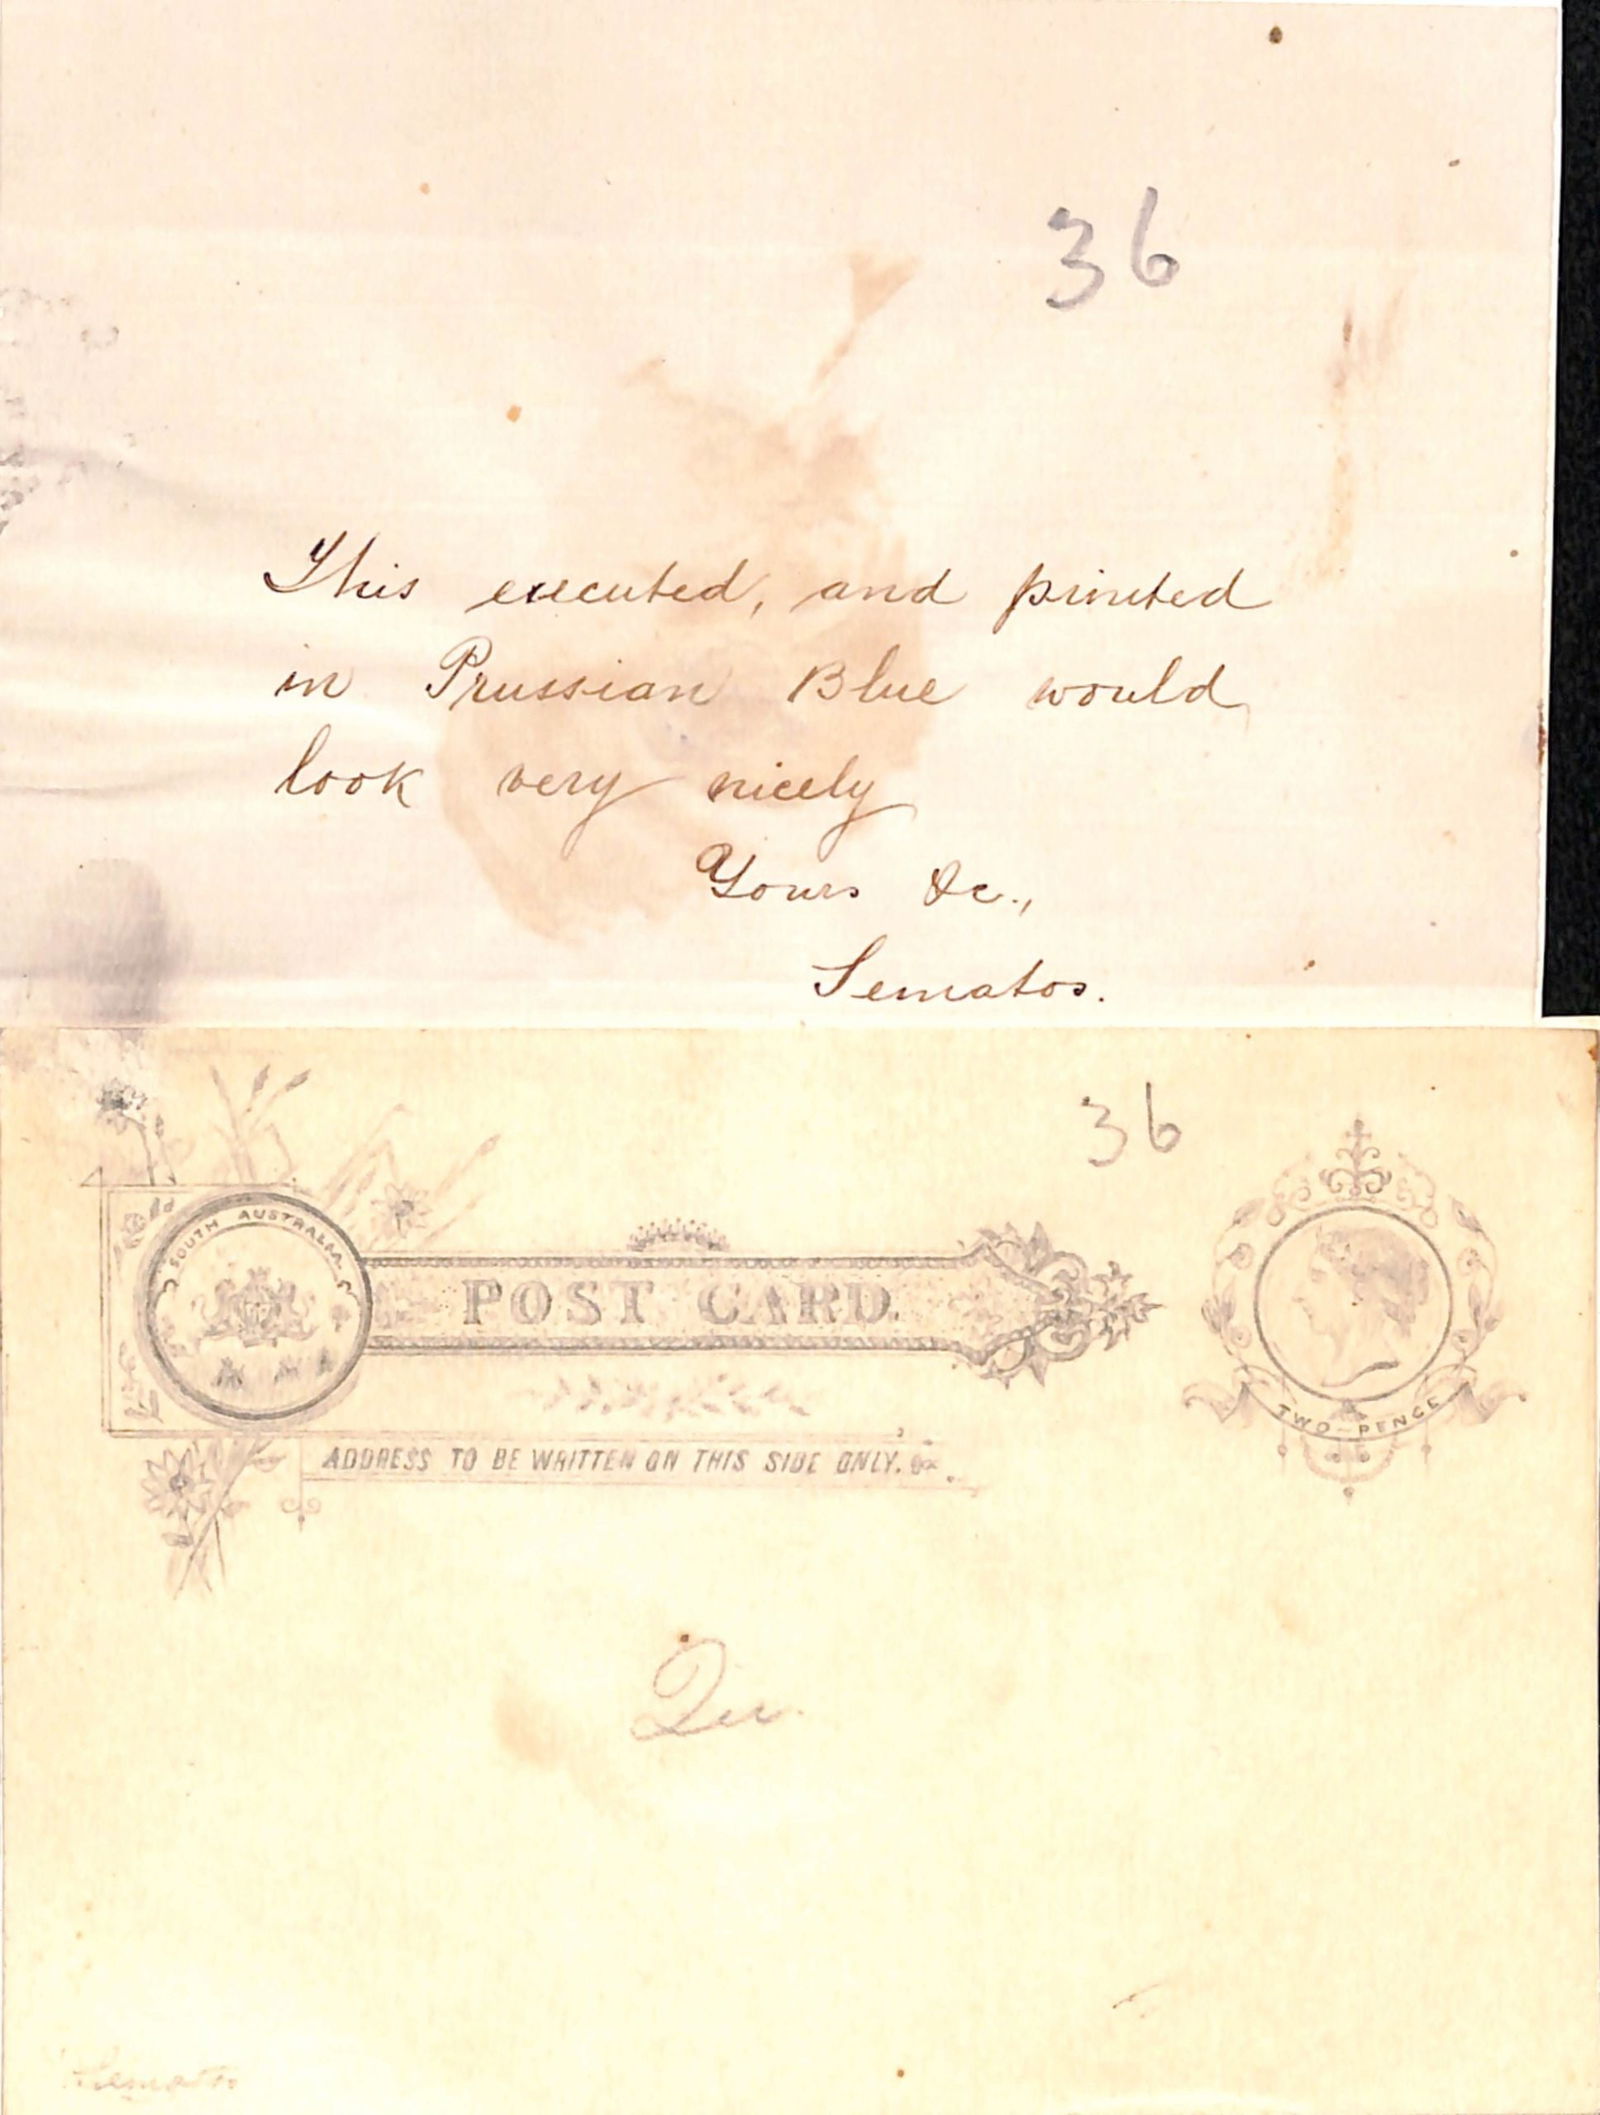 36
This executed, and printed
in Prussian Blue would
look very nicely
Yours &c.,
Sematos.
36
SOUTH AUSTRALIA.
POST CARD.
TWO-PENCE
ADDRESS TO BE WRITTEN ON THIS SIDE ONLY.
Sematos